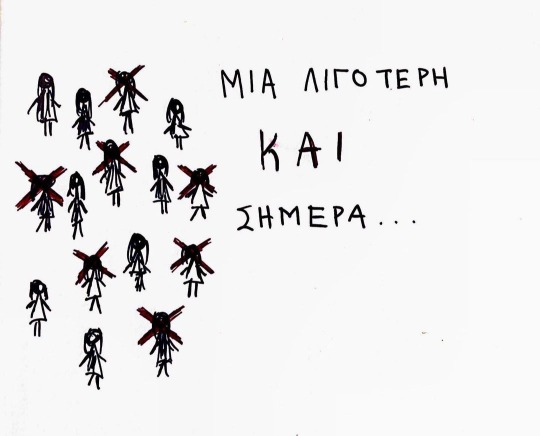 ΜΙΑ ΛΙΓΟΤΕΡΗ
ΚΑΙ
ΣΗΜΕΡΑ...